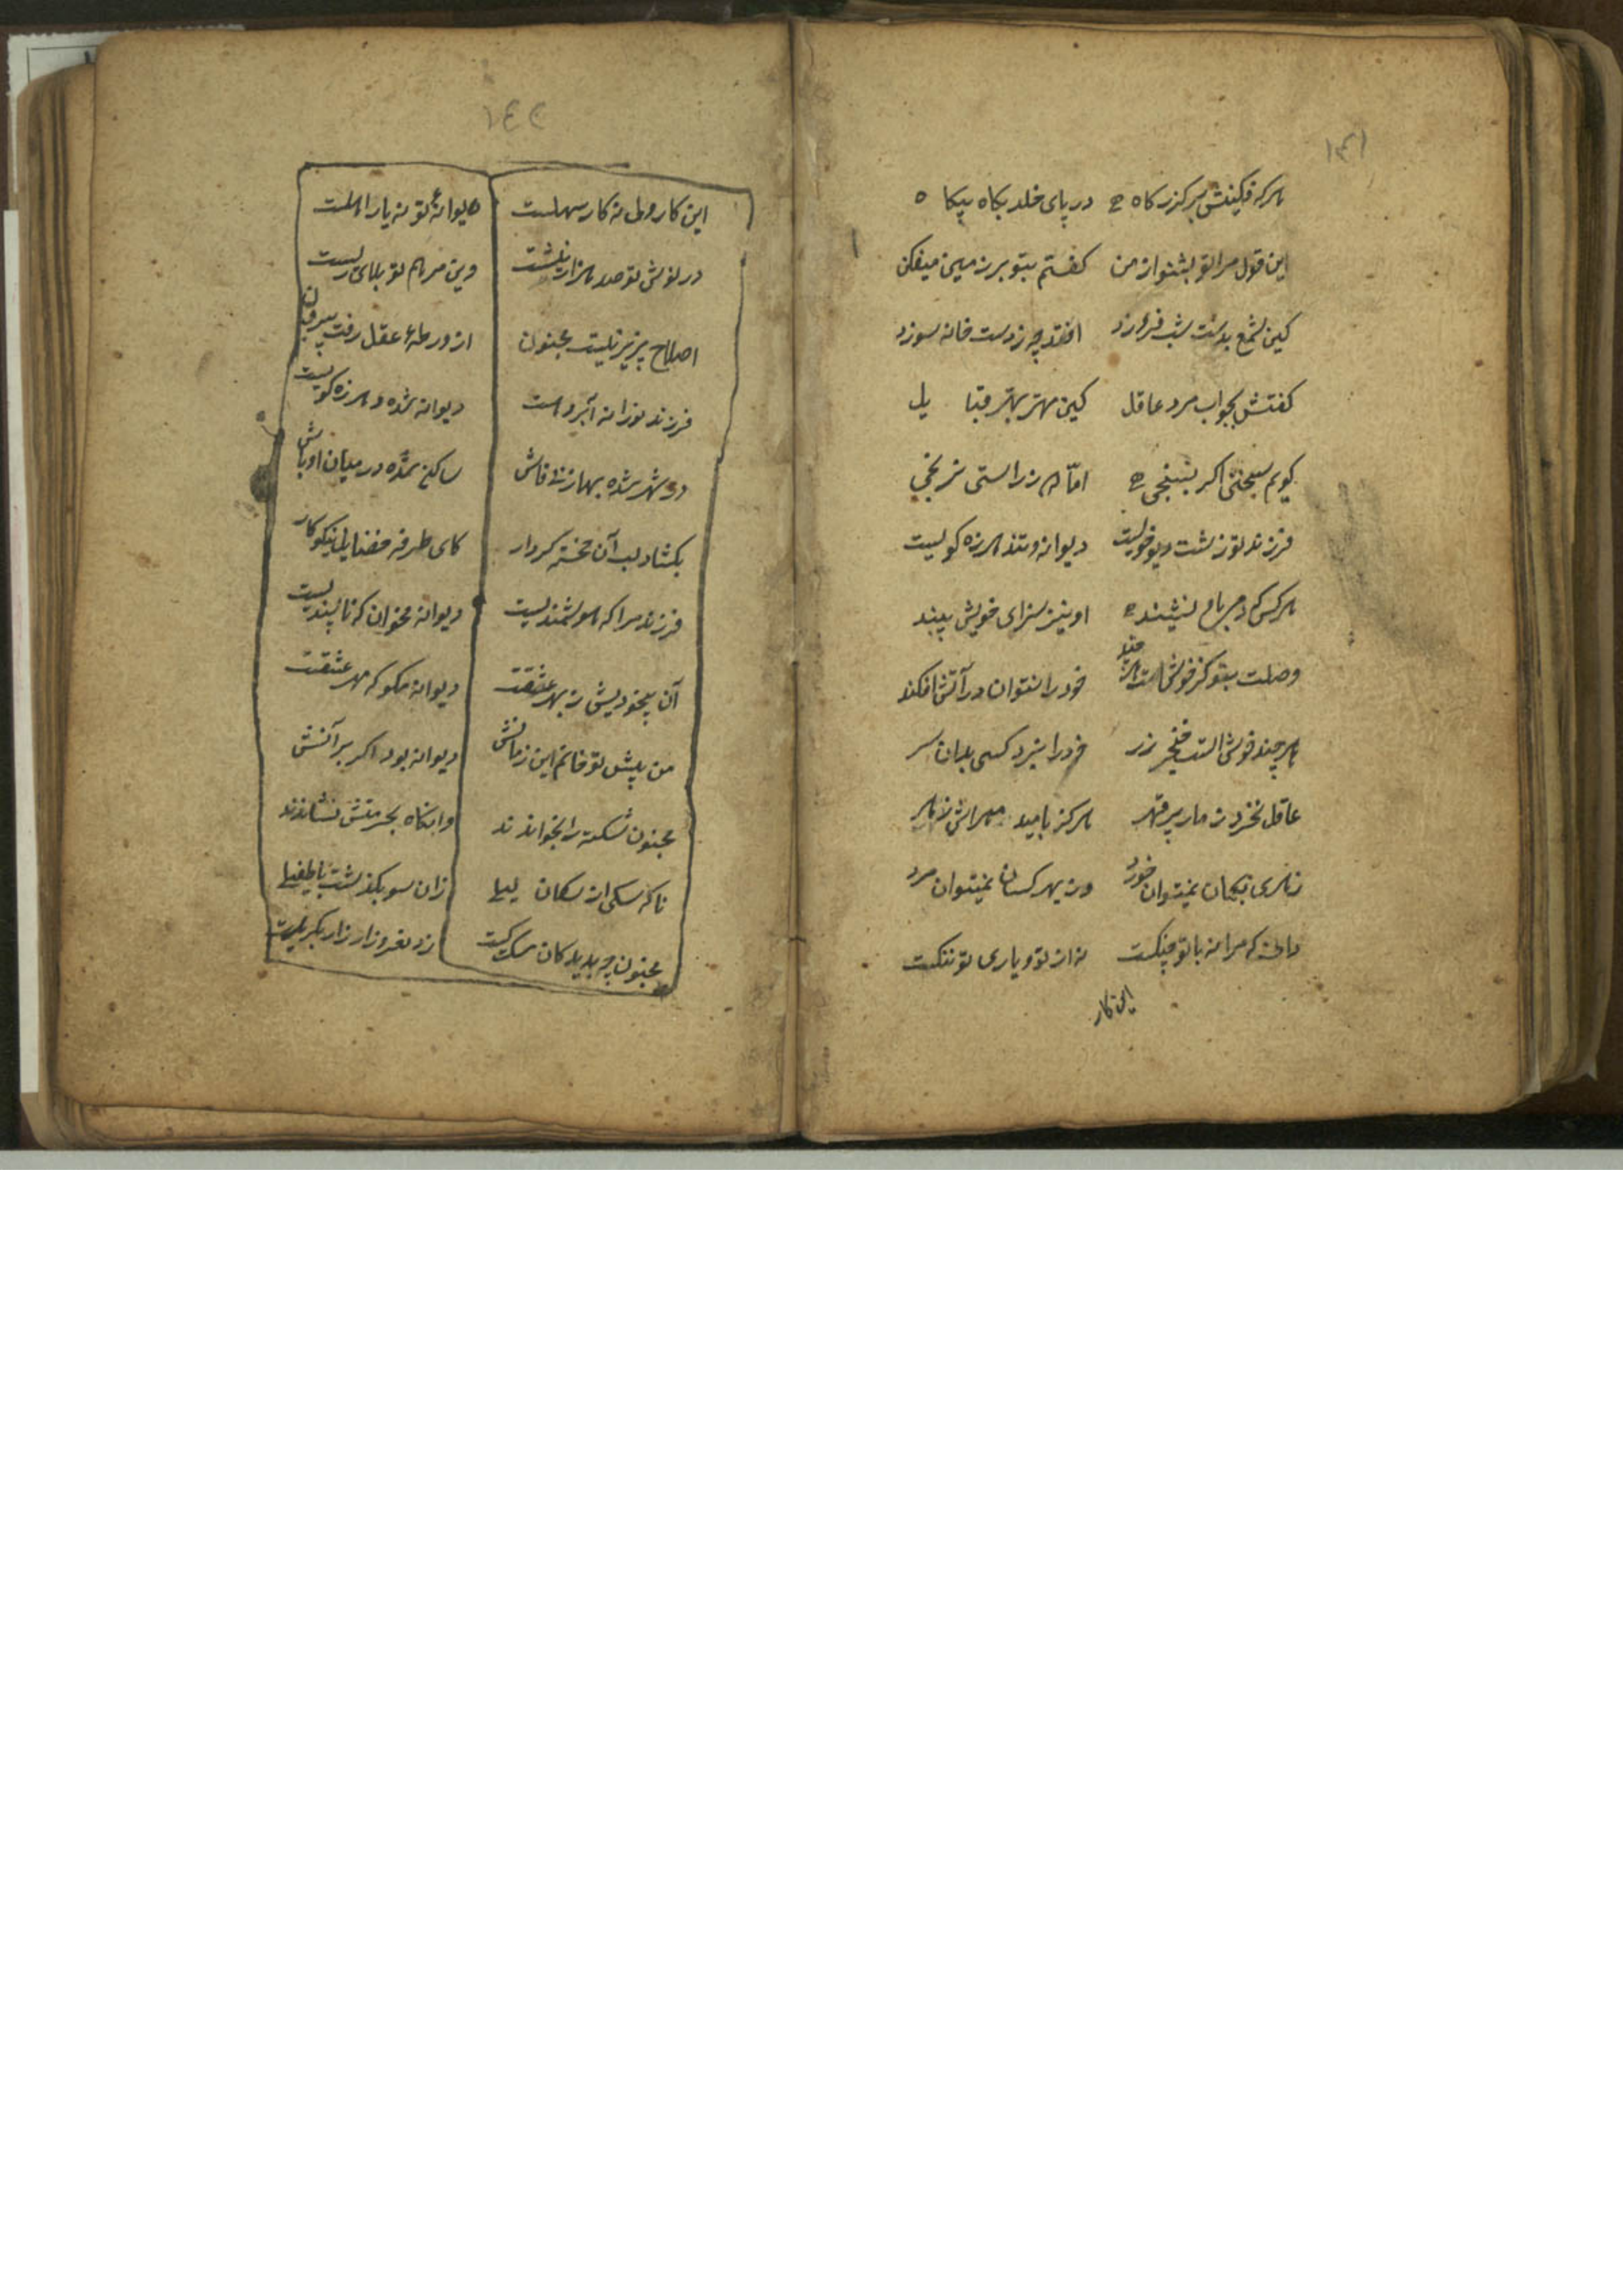 ۱۴۱
هر که فکینش هرکز کاه در پای خلد بکاه بیکا ه
این قول مرا تو بشنو از من کفتم بتو بر زمین میفکن
کین شمع بدست شب فروزد افتد چه ز دست خانه سوزد
کفتش بجواب مرد عاقل کین مهتر بهتر قبا یل
کویم سخنی اکر بسنجی اما ز راستی نرنجی
فرزند تو زشت و دیوخوئیست دیوانه و تند هرزه کوئیست
هر کس نشیند او نیز سزای خویش بیند
وصلت بتو کر خوش است هر چند خود را نتوان در آتش افکند
هر چند خوش است خنجر زر خود را نبرد کسی بدان سر
عاقل نخرد ز مار پر قهر هرکز بامید مهراش زهر
زهری بکمان نمیتوان خورد وز بهر کسان نمیتوان مرد
دانی که مرا نه با تو جنکست نه از تو و یاری تو ننکست
این کار
۱۴۲
این کار ولی نه کار سهلست دیوانهٔ تو نه یار اهلست
در نوش تو صد هزار نیشت وین مرهم تو بلای ریشست
اصلاح پذیر نیست مجنون از ورطهٔ عقل رفت بیرون
فرزند تو زانه آبرو است دیوانه شده و هرزه کویست
در شهر شده بهازئی فاش ساکن شده در میان اوباش
بکشاد لب آن خجسته کردار کای طرفه خضایل نیکو کار
فرزند مرا که هوشمندیست دیوانه مخوان که ناپسندیست
آن بیخودیش ز بهر عشقت دیوانه مکو که مهر عشقت
من پیش تو خانم این زمانش دیوانه بود اکر برانش
مجنون شکسته را بخواند ند وانکاه بحرمتش نشاندند
ناکه سکی از سکان لیلی زان سو بکذشت با طفیلی
مجنون چو بدید کان سک کیست زد نعره و زار زار بکریست